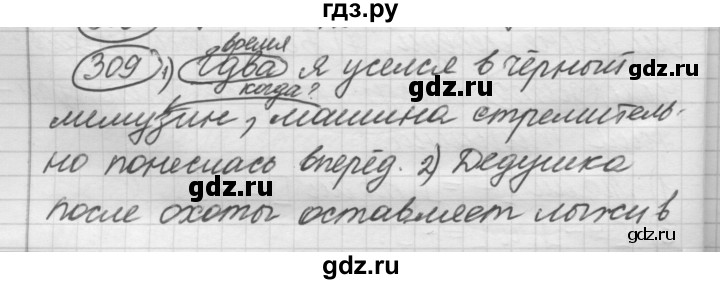 гдз.ру
время
309 1) Едва я уселся в чёрный
когда?
лимузин, машина стремитель-
но понеслась вперёд. 2) Дедушка
gdz.ru
после охоты оставляет лыжи в
gdz.ru
gdz.ru